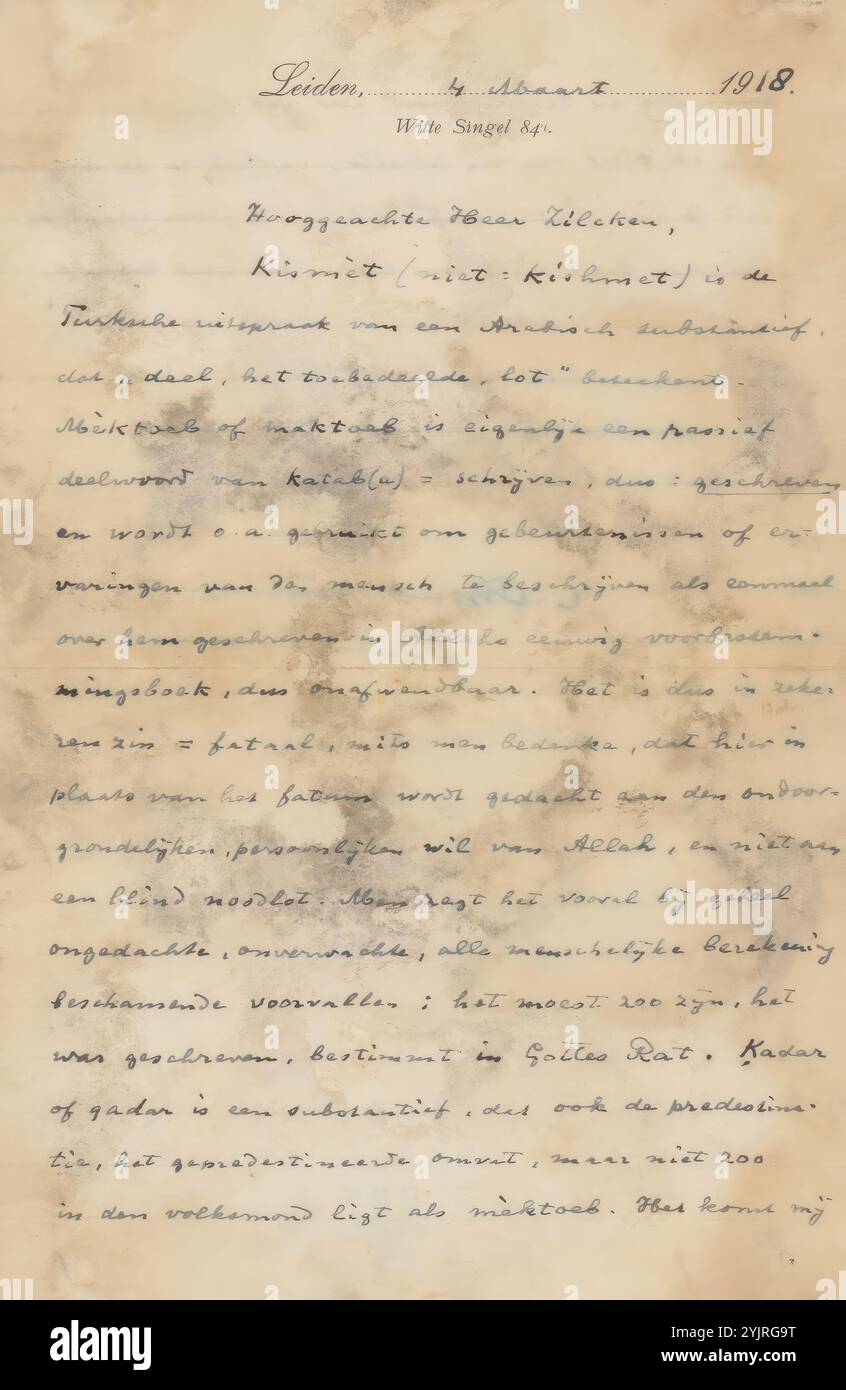 Leiden, 4 Maart 1918.
Witte Singel 84a.
Hooggeachte Heer Zilcken,
Kismèt (niet = kishmet) is de
Turksche uitspraak van een Arabisch substantief,
dat „deel, het toebedeelde, lot" beteekent.
Mèktoeb of maktoeb is eigenlijk een passief
deelwoord van katab(a) = schrijven, dus : geschreven
en wordt o.a. gebruikt om gebeurtenissen of er-
varingen van den mensch te beschrijven als eenmaal
over hem geschreven in Allahs eeuwig voorbestem-
mingsboek, dus onafwendbaar. Het is dus in zeke-
ren zin = fataal, mits men bedenke, dat hier in
plaats van het fatum wordt gedacht aan den ondoor-
grondelijken, persoonlijken wil van Allah, en niet aan
een blind noodlot. Men zegt het vooral bij geheel
ongedachte, onverwachte, alle menschelijke berekening
beschamende voorvallen ; het moest zoo zijn, het
was geschreven, bestimmt in Gottes Rat. Ḳadar
of qadar is een substantief, dat ook de predestina-
tie, het gepredestineerde omvat, maar niet zoo
in den volksmond ligt als mèktoeb. Het komt mij
alamy
Image ID: 2YJRG9T
www.alamy.com